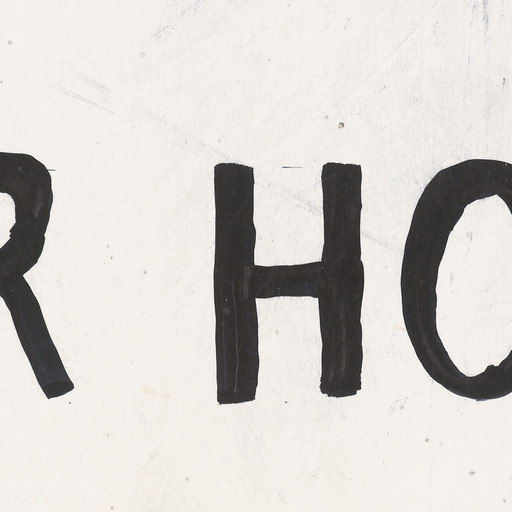 R HO